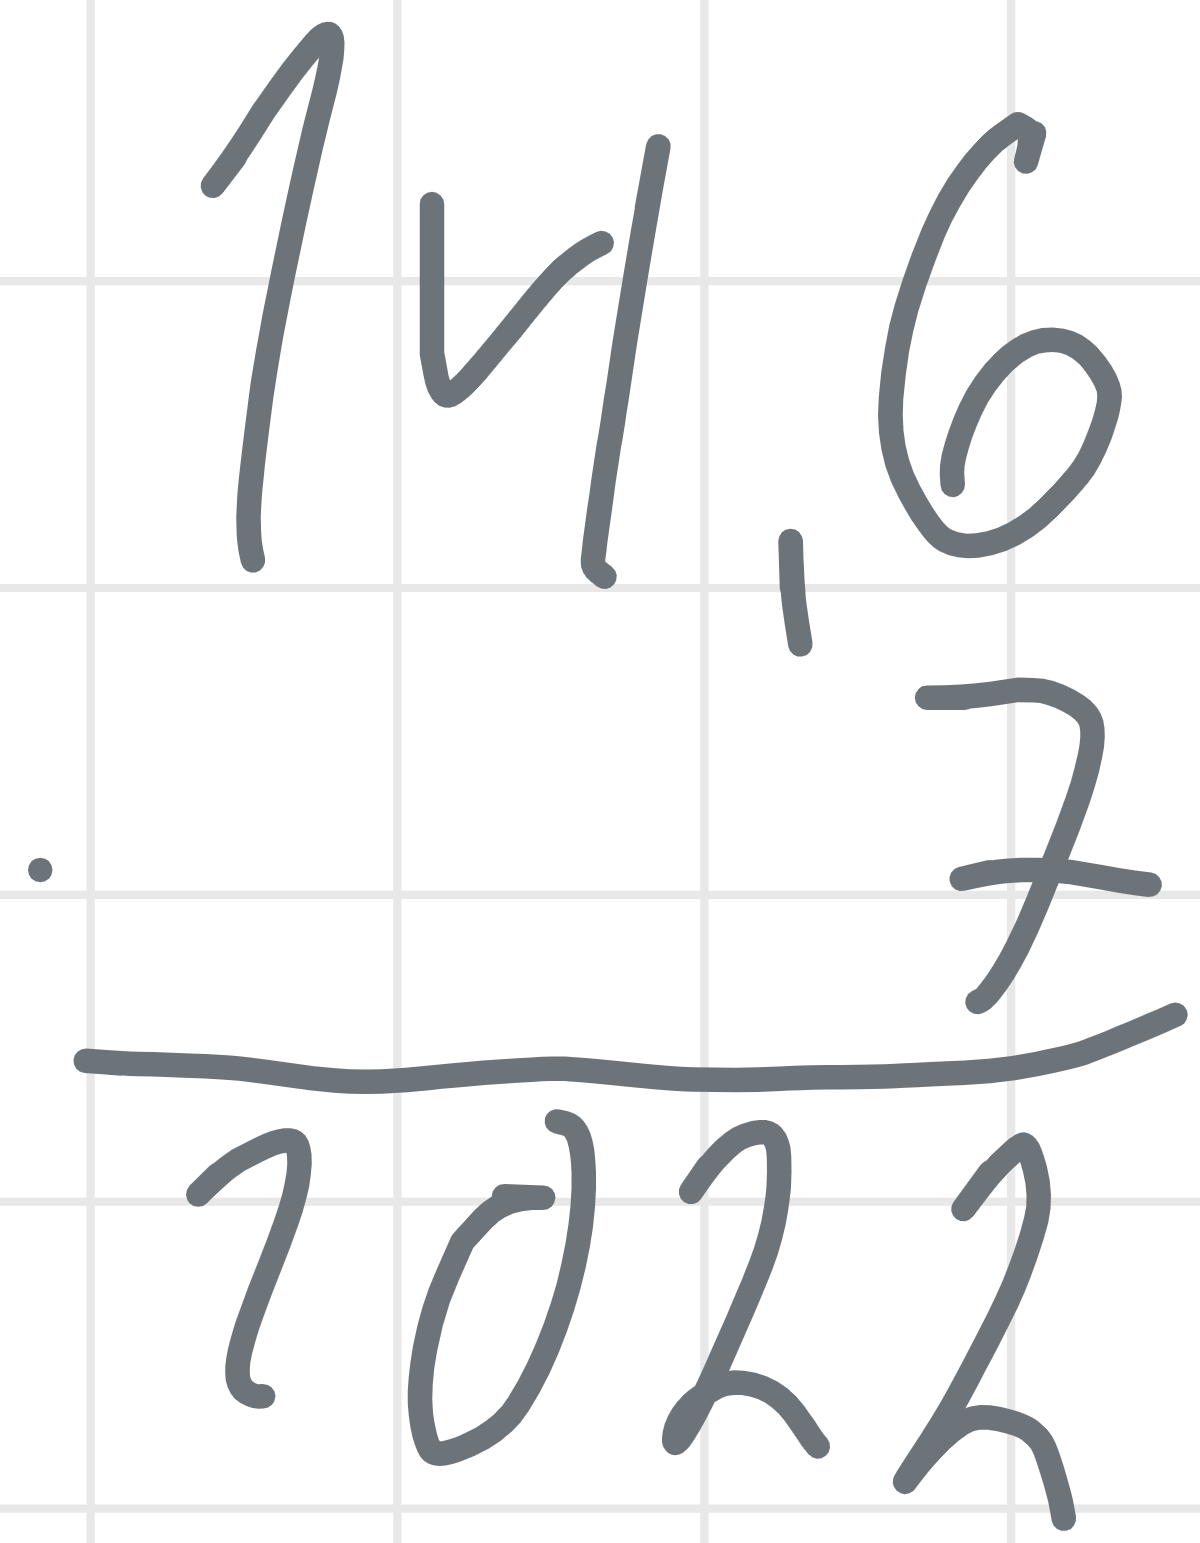 14,6
· 7
1022